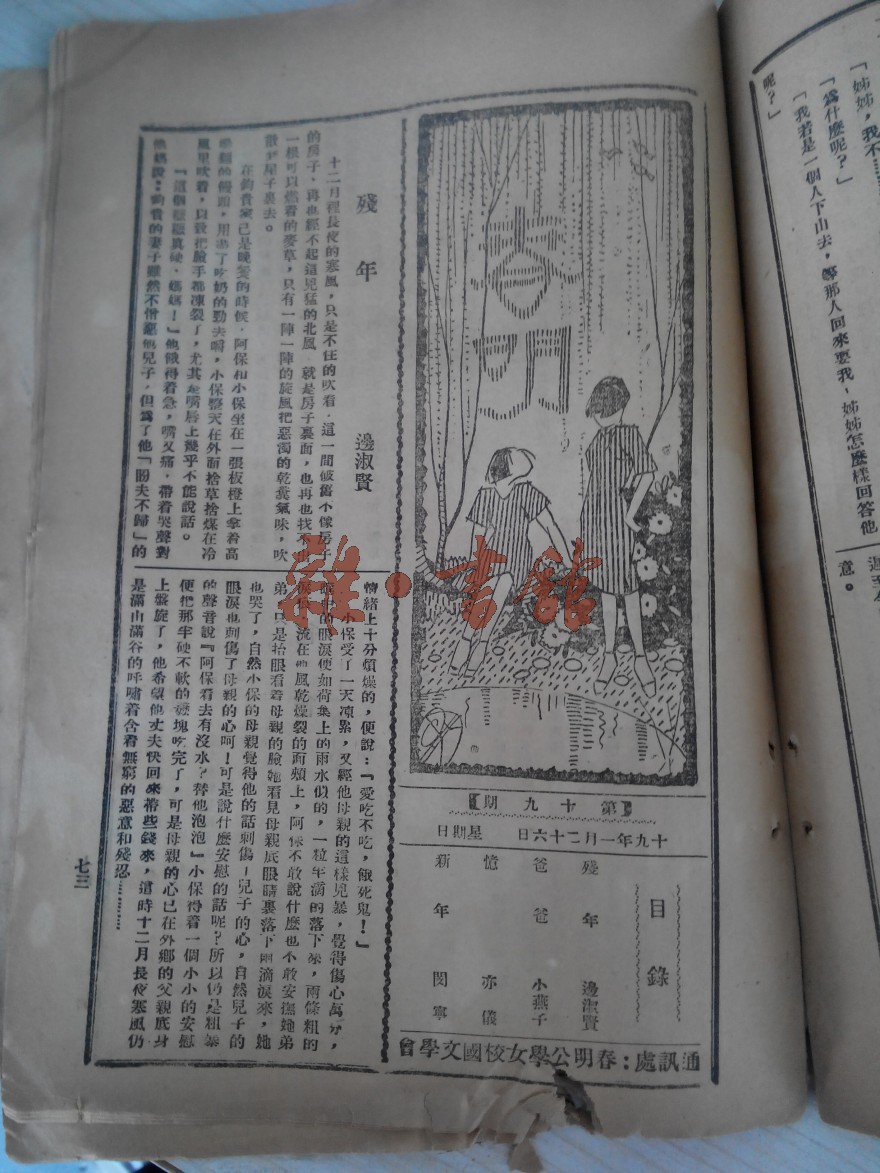 呢？」
「姊姊，我不……
「爲什麼呢？」
「我若是一個人下山去，等那人回來要我，姊姊怎麼樣回答他
意。
【第十九期】
十九年一月二十六日　星期日
目錄
殘年　邊淑賢
爸爸　小燕子
憶　亦儀
新年　閔寧
通訊處：春明公學女校國文學會
殘年
邊淑賢
十二月裡長夜的寒風，只是不住的吹着．這一間破舊小傢房子
的房子，再也經不起這兇猛的北風．就是房子裏面，也再也找不出
一根可以燃着的麥草，只有一陣一陣的旋風把惡濁的乾糞氣味，吹
散到屋子裏去。
在的貴家已是晚餐的時候．阿保和小保坐在一張板橙上拿着高
的饅頭，用盡了吃奶的勁去啃，小保整天在外面捨草捨煤在冷
風里吹着，以致把臉手都凍裂了，尤其是嘴唇上幾乎不能說話。
『這個　真硬．媽媽！』他餓得着急，嘴又痛．帶着哭聲對
他媽說：的貴的妻子雖然不憎惡他兒子．但爲了他『勝夫不歸』的
情緒上十分煩燥的，便說：『愛吃不吃，餓死鬼！』
小保受了一天凍累，又經他母親的這樣兇暴，覺得傷心萬分，
眼中的眼淚便如荷葉上的雨水似的，一粒年滴的落下來，兩條粗的
淚痕　流在他風乾燥裂的面頰上，阿保不敢說什麼也不敢安撫她弟
弟，只是抬眼看着母親的臉她看見母親底眼睛裏落下兩滴淚來，她
也哭了，自然小保的母親覺得他的話刺傷了兒子的心，自然兒子的
眼淚也刺傷了母親的心呵！可是說什麼安慰的話呢？所以仍是粗暴
的聲音說『阿保看去有沒水？替他泡泡』小保得着一個小小的安慰
便把那牢硬不軟的　塊吃完了，可是母親的心已在外鄉的父親底身
上盤旋了，他希望他丈夫快回來帶些錢來，這時十二月長夜寒風仍
是滿山滿谷的呼嘯着含着無窮的惡意和殘忍…………
七三
雜·書館